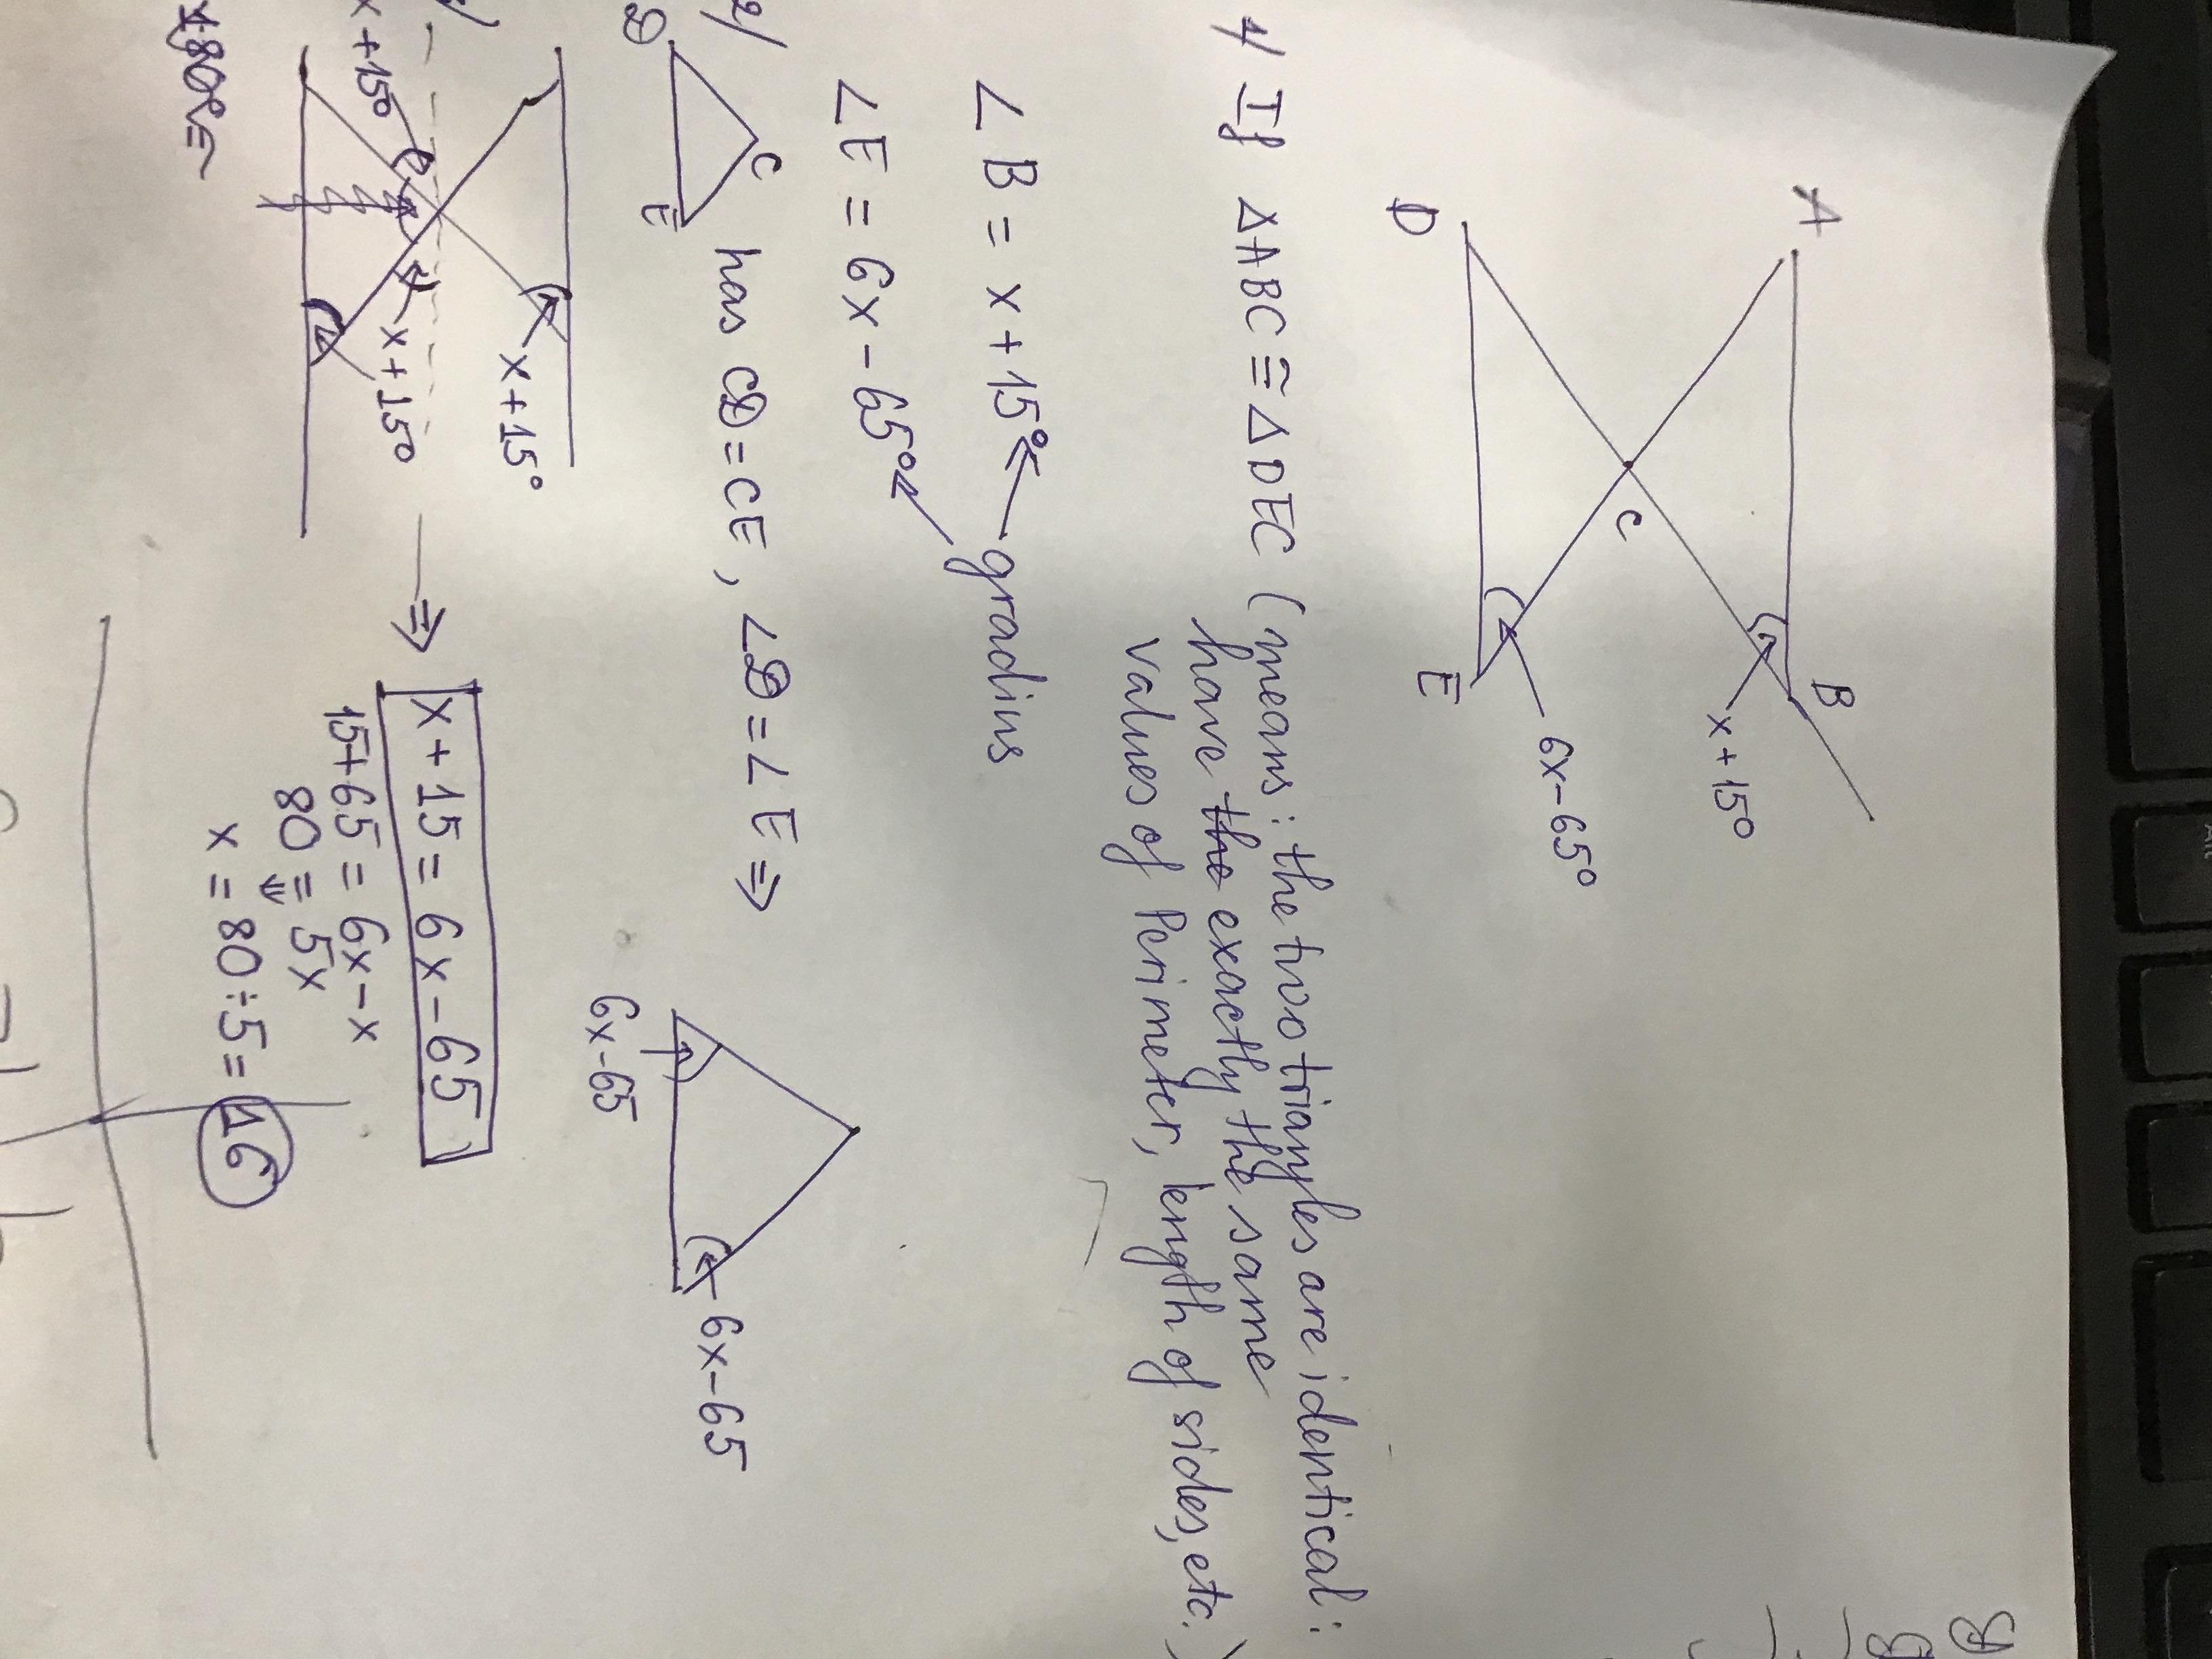 A
B
x+15°
C
6x-65°
D
E
1/ If ΔABC ≅ ΔDEC (means: the two triangles are identical:
have the exactly the same
values of Perimeter, length of sides, etc.)
∠B = x+15°
gradius
∠E = 6x-65°
2/
C
D
E
has CD=CE, ∠D=∠E ⇒
6x-65
6x-65
x+15°
x+15°
x+15°
⇒ x+15 = 6x-65
15+65 = 6x-x
80 = 5x
x = 80÷5 = 16